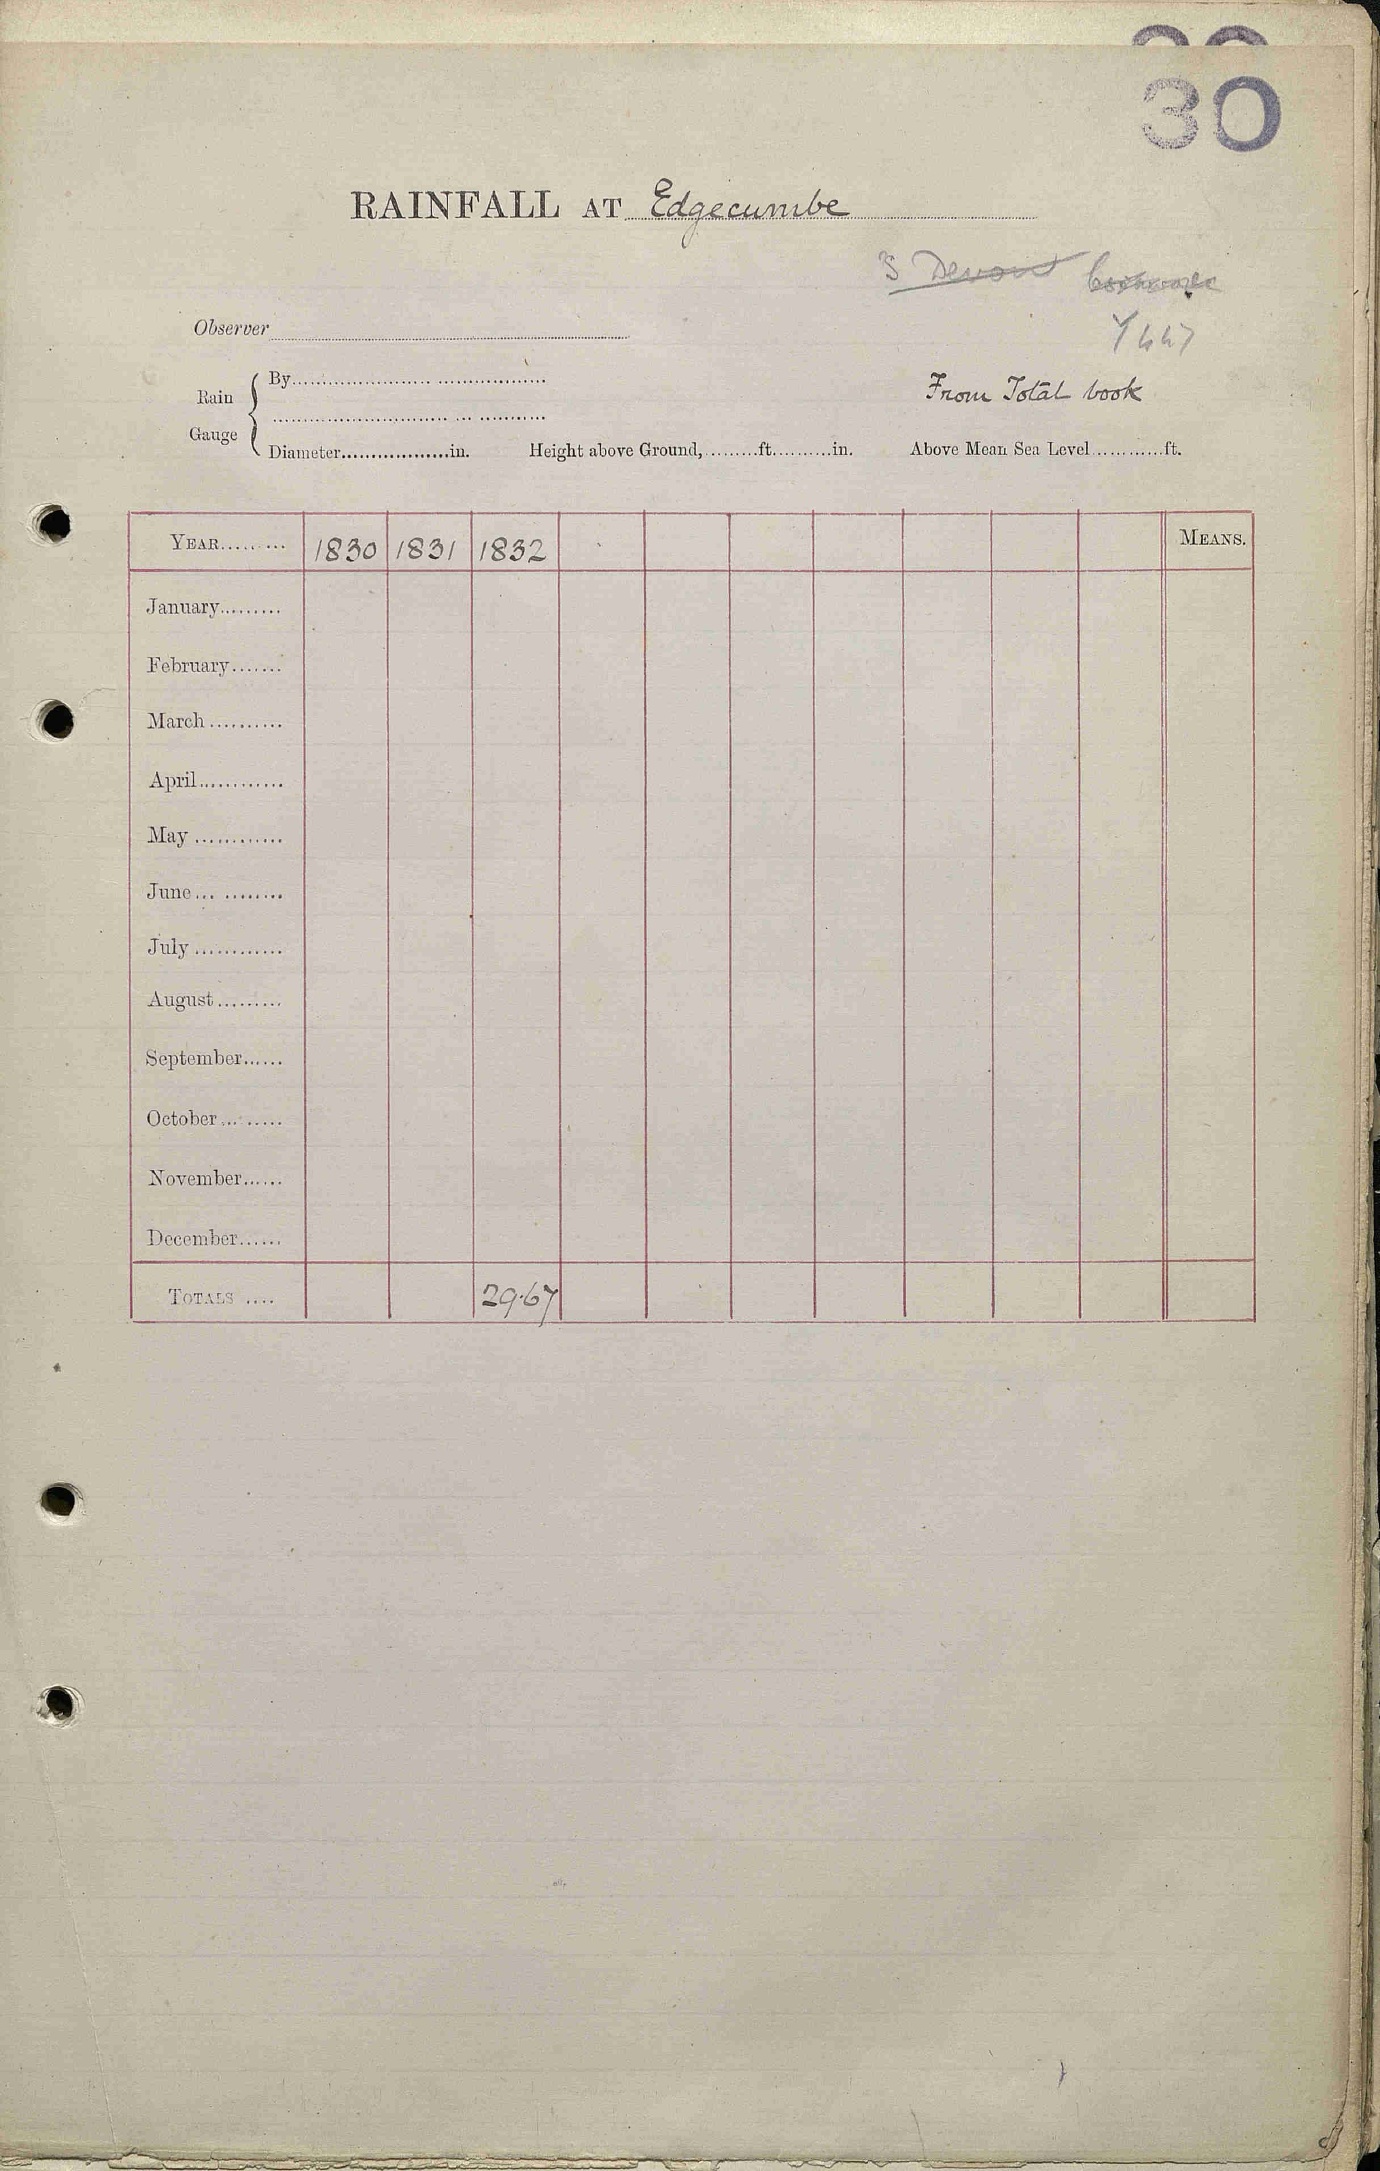 30
RAINFALL AT Edgecumbe
S Devon Cornwall
From Total book
Observer
Rain Gauge
By
Diameter in. Height above Ground, ft. in. Above Mean Sea Level ft.
YEAR 1830 1831 1832 MEANS.
January
February
March
April
May
June
July
August
September
October
November
December
TOTALS 29.67